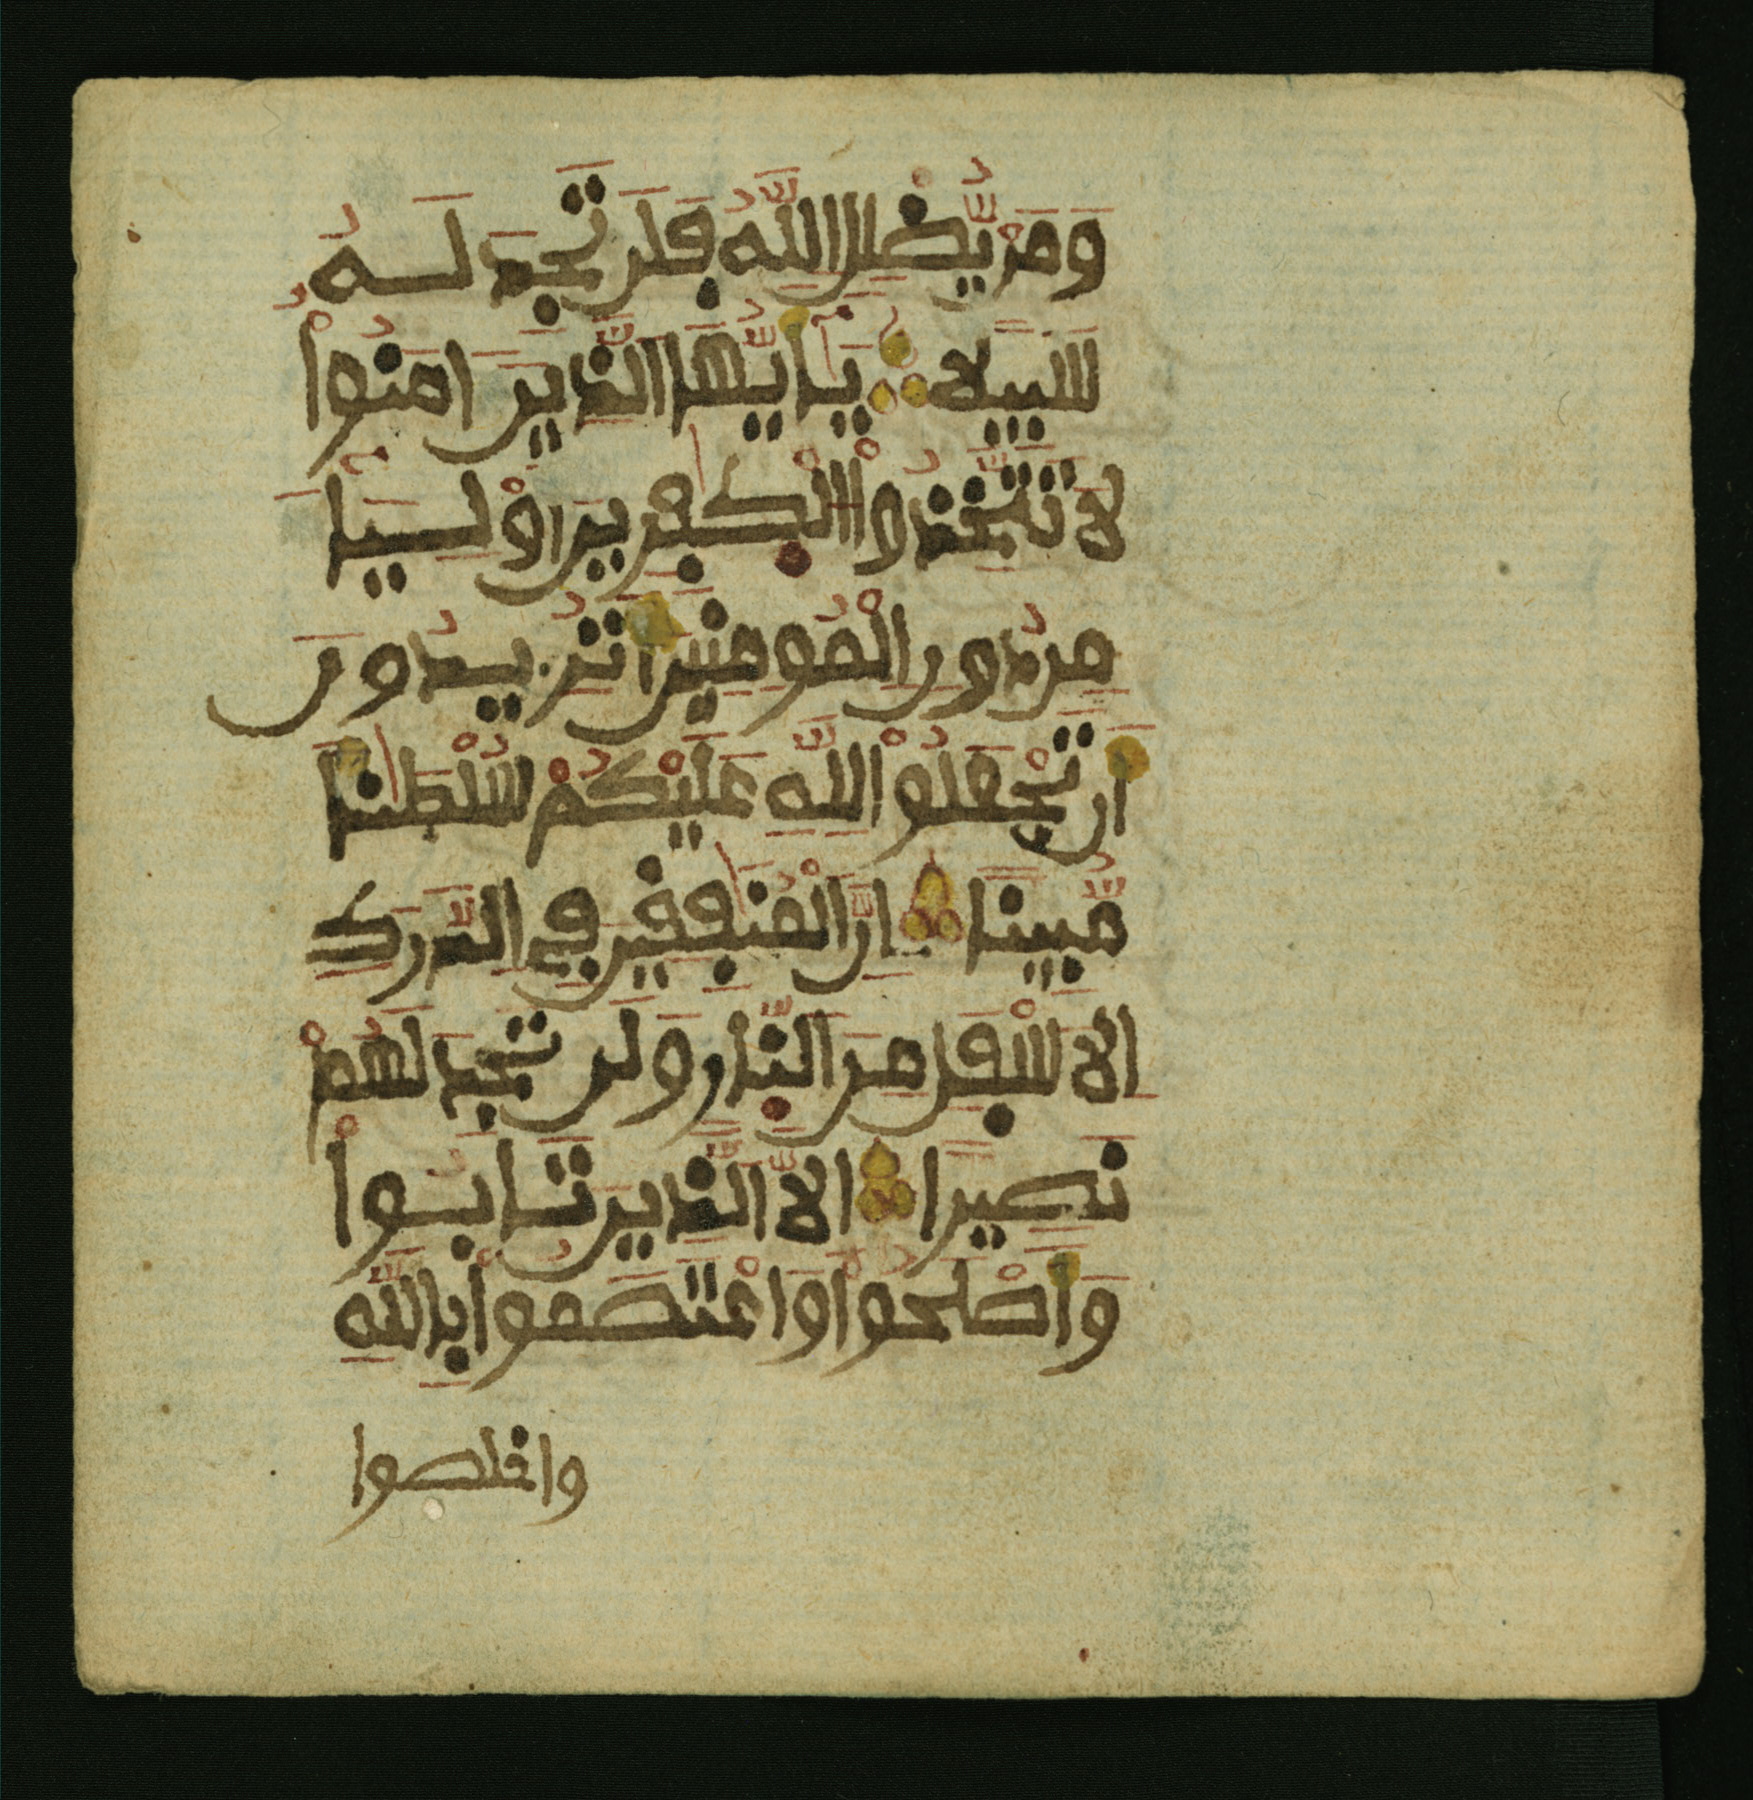 وَمَنْ يُّضْلِلِ اللَّهُ فَلَن تَجِدَ لَهُ
سَبِيلًا يَٰأَيُّهَا الَّذِينَ ءَامَنُوا
لَا تَتَّخِذُوا الْكَٰفِرِينَ أَوْلِيَآءَ
مِن دُونِ الْمُومِنِينَ أَتُرِيدُونَ
أَن تَجْعَلُوا لِلَّهِ عَلَيْكُمْ سُلْطَٰنًا
مُّبِينًا إِنَّ الْمُنَٰفِقِينَ فِي الدَّرَكِ
الَاسْفَلِ مِنَ النَّارِ وَلَن تَجِدَ لَهُمْ
نَصِيرًا إِلَّا الَّذِينَ تَابُوا
وَأَصْلَحُوا وَاعْتَصَمُوا بِاللَّهِ
واخلصوا